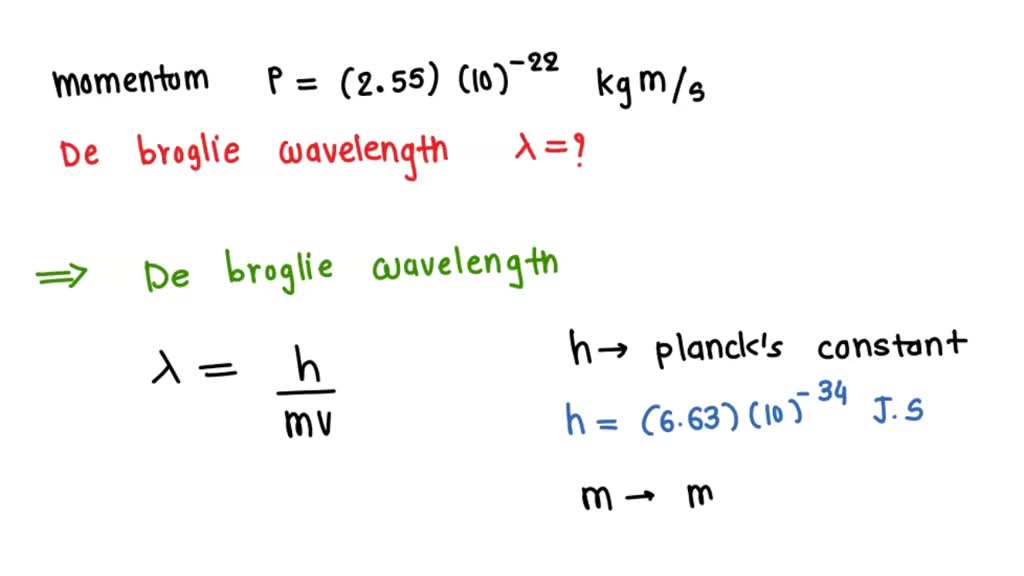 momentum P = (2.55) (10)⁻²² kg m/s
De broglie wavelength λ = ?
⇒ De broglie wavelength
λ = h/mv
h → planck's constant
h = (6.63) (10)⁻³⁴ J.S
m → m